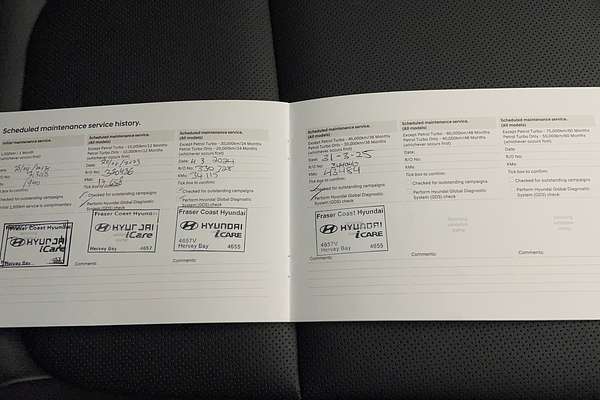 Scheduled maintenance service history.
Initial maintenance service
1,500km / 1 Month
(whichever occurs first)
Checked for outstanding campaigns
Fraser Coast Hyundai
HYUNDAI
iCare
Hervey Bay
Scheduled maintenance service.
(All models)
Except Petrol Turbo - 15,000km/12 Months
Petrol Turbo Only - 10,000km/12 Months
(whichever occurs first)
Date:
R/O No:
KMs:
Tick box to confirm:
Checked for outstanding campaigns
Perform Hyundai Global Diagnostic
System (GDS) check
Fraser Coast Hyundai
HYUNDAI
iCare
Hervey Bay 4657
Comments:
Scheduled maintenance service.
(All models)
Except Petrol Turbo - 30,000km/24 Months
Petrol Turbo Only - 20,000km/24 Months
(whichever occurs first)
Date: 4 3 2024
R/O No: 330 728
KMs:
Tick box to confirm:
Checked for outstanding campaigns
Perform Hyundai Global Diagnostic
System (GDS) check
Fraser Coast Hyundai
HYUNDAI
iCARE
4657V
Hervey Bay 4655
Comments:
Scheduled maintenance service.
(All models)
Except Petrol Turbo - 45,000km/36 Months
Petrol Turbo Only - 30,000km/36 Months
(whichever occurs first)
Date: 31-3-25
R/O No:
KMs: 43484
Tick box to confirm:
Checked for outstanding campaigns
Perform Hyundai Global Diagnostic
System (GDS) check
Fraser Coast Hyundai
HYUNDAI
iCARE
4657V
Hervey Bay 4655
Comments:
Scheduled maintenance service.
(All models)
Except Petrol Turbo - 60,000km/48 Months
Petrol Turbo Only - 40,000km/48 Months
(whichever occurs first)
Date:
R/O No:
KMs:
Tick box to confirm:
Checked for outstanding campaigns
Perform Hyundai Global Diagnostic
System (GDS) check
Servicing
validation
stamp
Comments:
Scheduled maintenance service.
(All models)
Except Petrol Turbo - 75,000km/60 Months
Petrol Turbo Only - 50,000km/60 Months
(whichever occurs first)
Date:
R/O No:
KMs:
Tick box to confirm:
Checked for outstanding campaigns
Perform Hyundai Global Diagnostic
System (GDS) check
Servicing
validation
stamp
Comments: